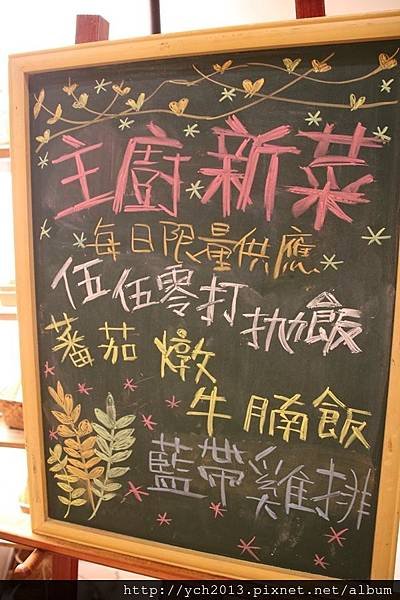 主廚新菜
每日限量供應
伍伍零打拋飯
蕃茄燉
牛腩飯
藍帶雞排
http://ych2013.pixnet.net/album